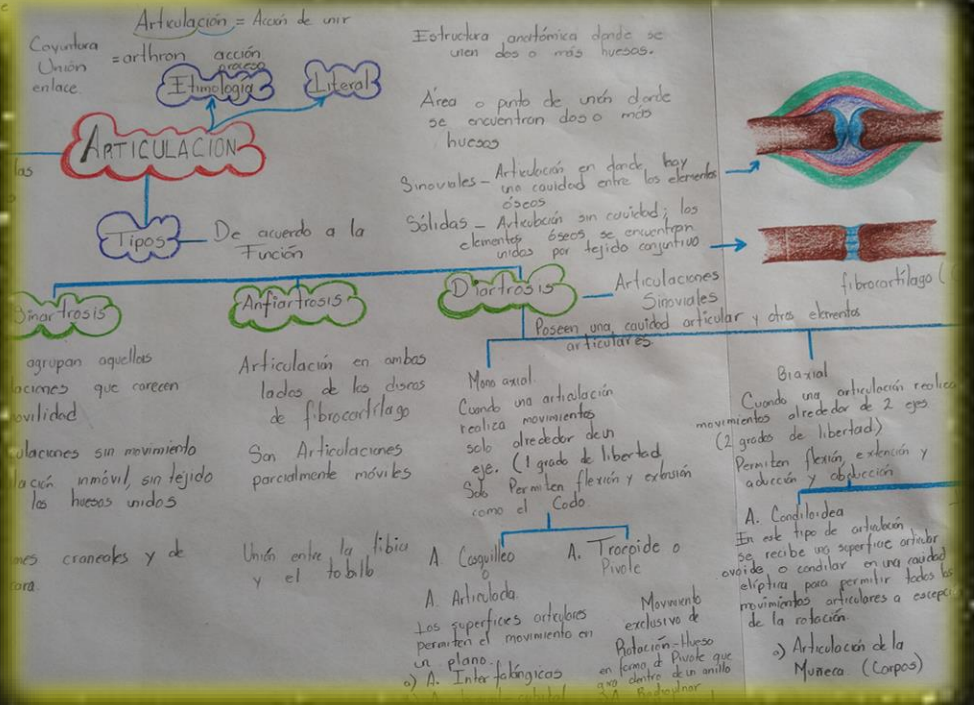 Articulación = Acción de unir
Coyuntura
Unión
enlace.
= arthron acción
proceso
Etimología
Literal
Estructura anatómica donde se
unen dos o más huesos.
Área o punto de unión donde
se encuentran dos o más
huesos
ARTICULACIÓN
las
Sinoviales - Articulación en donde hay
una cavidad entre los elementos
óseos
Sólidas - Articulación sin cavidad; los
elementos óseos se encuentran
unidos por tejido conjuntivo
fibrocartílago (
Tipos
De acuerdo a la
Función
Sinartrosis
Anfiartrosis
Diartrosis
Articulaciones
Sinoviales
Poseen una cavidad articular y otros elementos
articulares.
agrupan aquellas
aciones que carecen
ovilidad
ulaciones sin movimiento
lación inmóvil, sin tejido
los huesos unidos
nes craneales y de
ara.
Articulación en ambos
lados de los discos
de fibrocartílago
Son Articulaciones
parcialmente móviles
Unión entre la tibia
y el tobillo
Mono axial
Cuando una articulación
realiza movimientos
solo alrededor de un
eje. (1 grado de libertad
Solo Permiten flexión y extensión
como el Codo.
A. Casquilleo
o
A. Articulada
Los superficies articulares
permiten el movimiento en
un plano.
a) A. Interfalángicas
A. Trocoide o
Pivote
Movimiento
exclusivo de
Rotación-Hueso
en forma d Pivote que
gira dentro de un anillo
A. Radioulnar
Biaxial
Cuando una articulación realiza
movimientos alrededor de 2 ejes.
(2 grados de libertad.)
Permiten flexión, extención y
aducción y abducción
A. Condiloidea
En este tipo de articulación
se recibe una superficie articular
ovoide o condilar en una cavidad
elíptica para permitir todos los
movimientos articulares a excepci
de la rotación.
a) Articulación de la
Muñeca (Carpos)